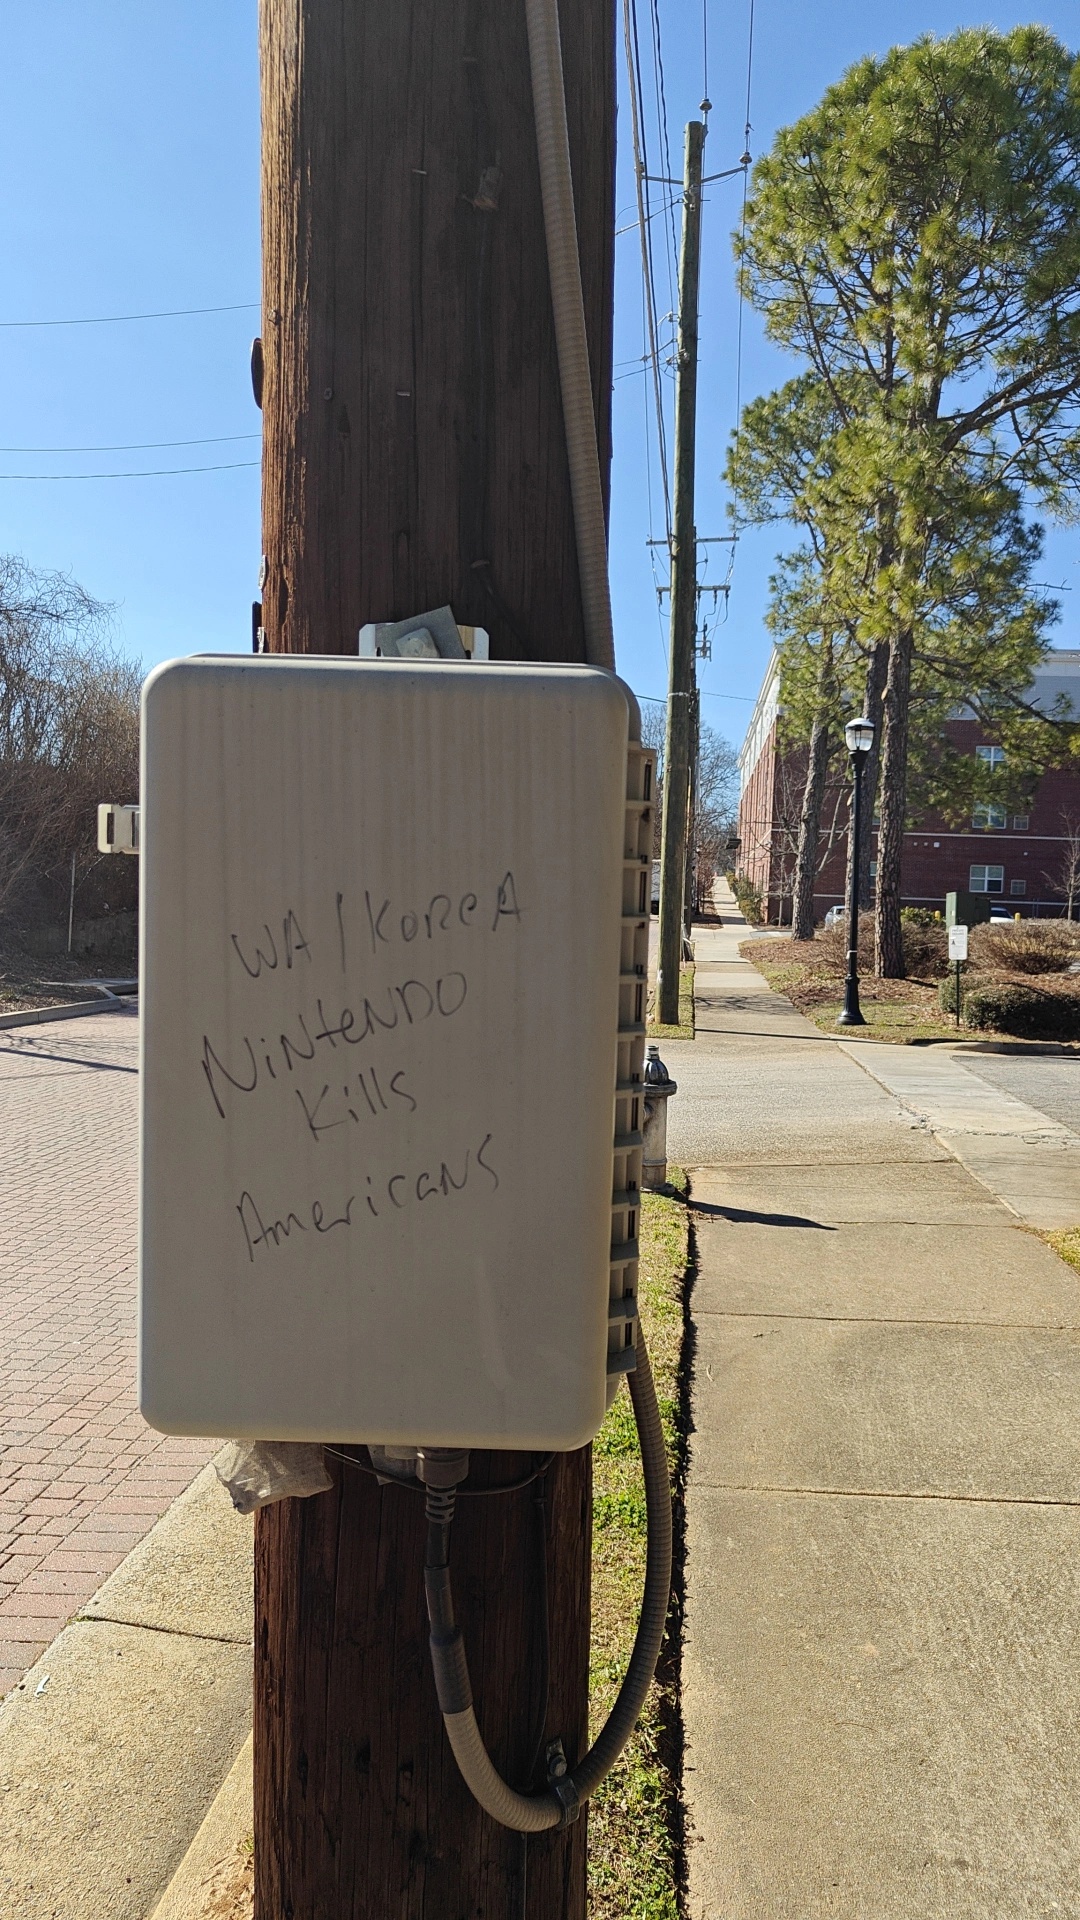 WA / KoReA
NiNteNDO
Kills
AmericaNS